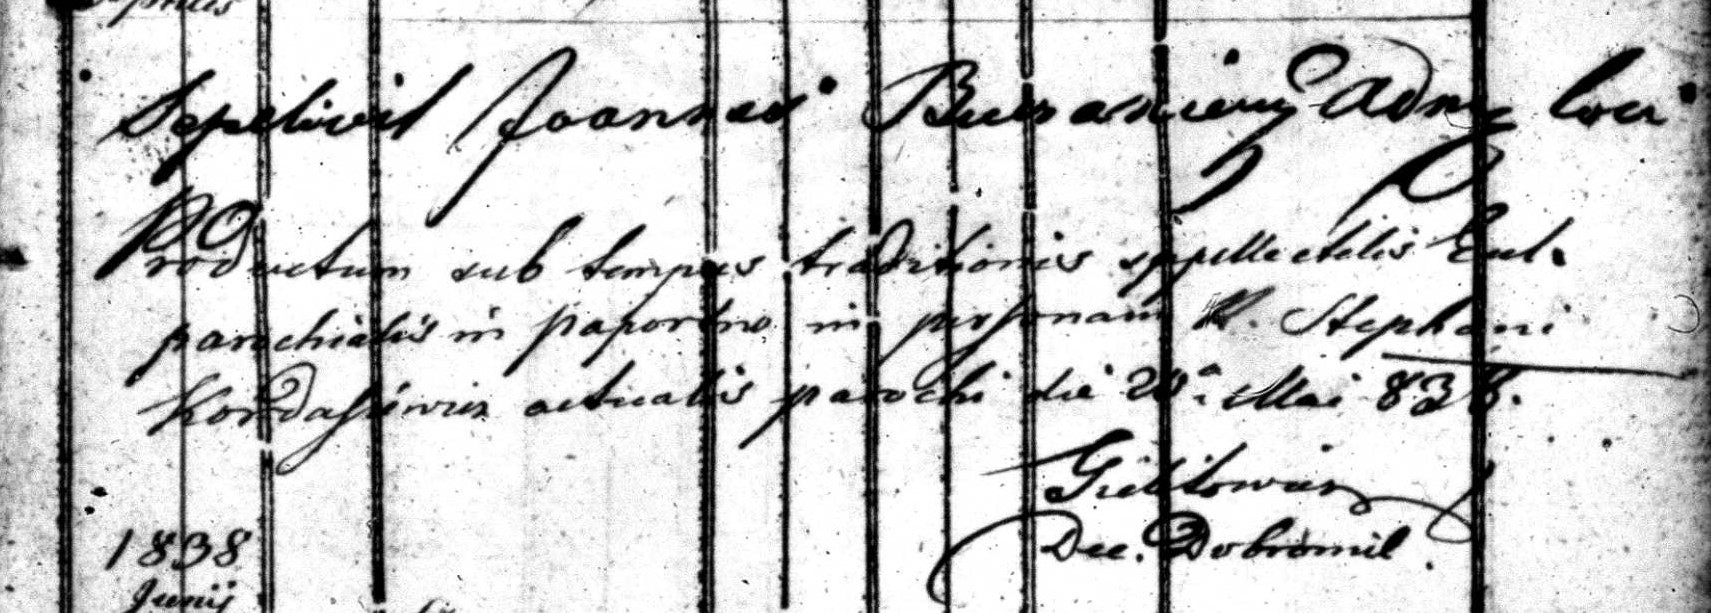 Aprilis
Sepelivit Joannes Adm loci
Productum sub tempus traditionis suppellectilis Eccl.
parochialis in Paportno in personam R. Stephani
Kordasiewicz actualis parochi die 20a Mai 838.
Dec. Dobromil
1838
Junij